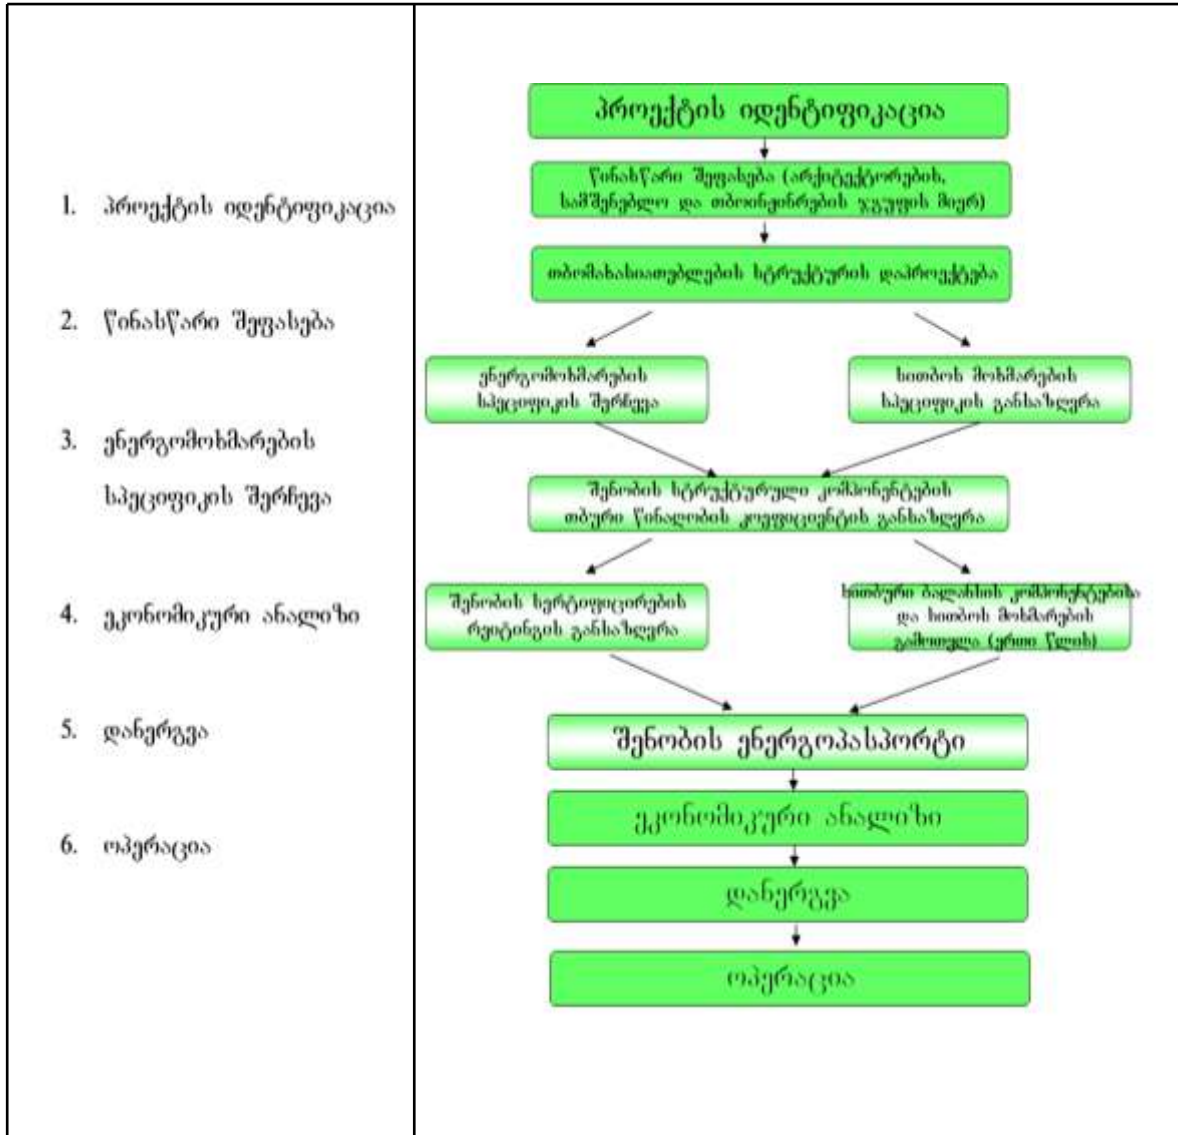 1. პროექტის იდენტიფიკაცია
2. წინასწარი შეფასება
3. ენერგომოხმარების
სპეციფიკის შერჩევა
4. ეკონომიკური ანალიზი
5. დანერგვა
6. ოპერაცია
პროექტის იდენტიფიკაცია
წინასწარი შეფასება (არქიტექტორების,
სამშენებლო და თბოინჟინრების ჯგუფის მიერ)
თბომახასიათებლების სტრუქტურის დაპროექტება
ენერგომოხმარების
სპეციფიკის შერჩევა
სითბოს მოხმარების
სპეციფიკის განსაზღვრა
შენობის სტრუქტურული კომპონენტების
თბური წინაღობის კოეფიციენტის განსაზღვრა
შენობის სერტიფიცირების
რეიტინგის განსაზღვრა
სითბური ბალანსის კომპონენტებისა
და სითბოს მოხმარების
გამოთვლა (ერთი წლის)
შენობის ენერგოპასპორტი
ეკონომიკური ანალიზი
დანერგვა
ოპერაცია